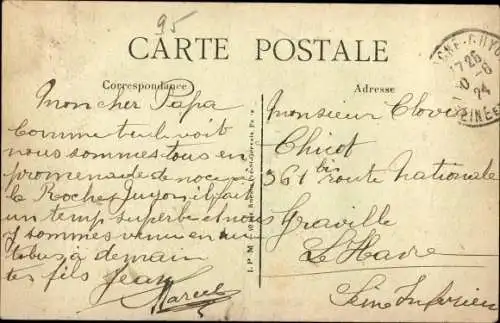 95
CARTE POSTALE
Correspondance
Adresse
Mon cher Papa
Comme tu le voit
nous sommes tous en
promenade de noce
la Roche Guyon il fait
un temp superbe et nous
y sommes venu en
à demain
tes fils Jean
Marcel
Monsieur Clovis
Chicot
361 bis route Nationale
Graville
Le Havre
Seine Inférieure
17 25
24
I. P. M.